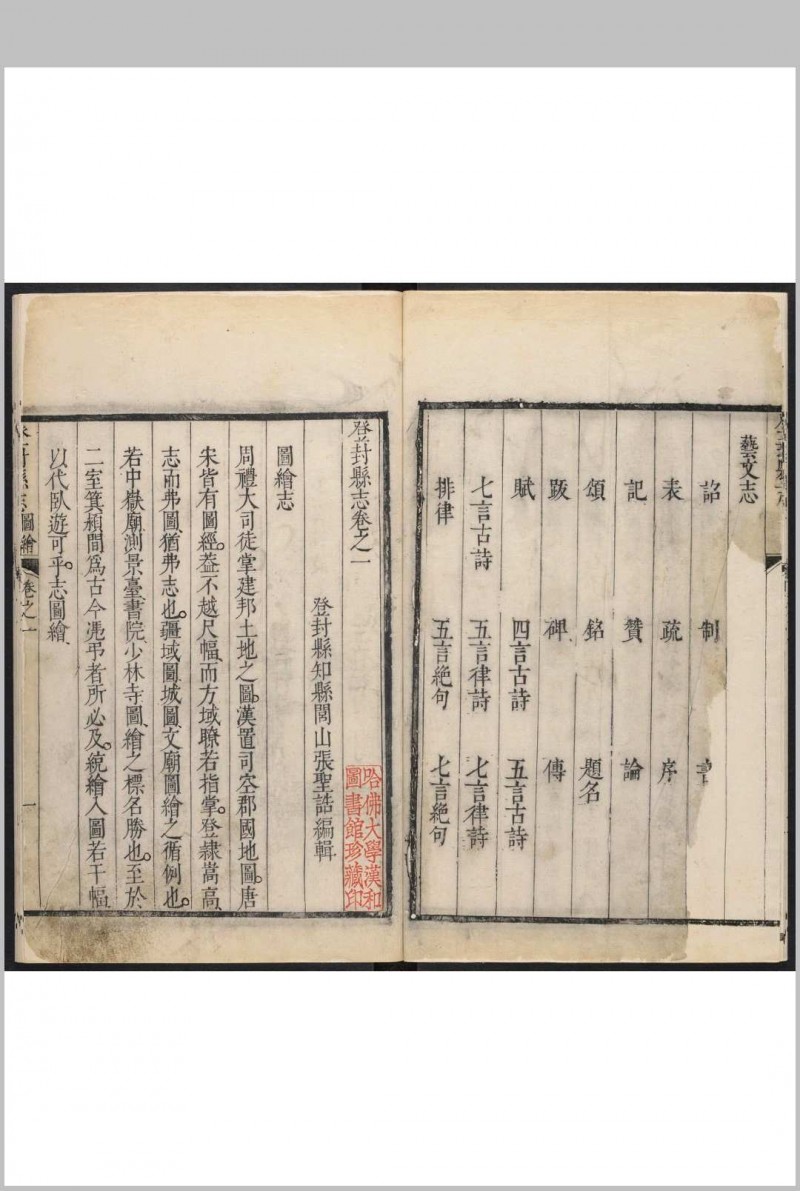 藝文志
詔 制
表 疏 序
記 贊 論
頌 銘 題名
跋 碑 傳
賦 四言古詩 五言古詩
七言古詩 五言律詩 七言律詩
排律 五言絕句 七言絕句
登封縣志卷之一
登封縣知縣閭山張聖誥編輯
哈佛大學漢和
圖書館珍藏印
圖繪志
周禮大司徒掌建邦土地之圖漢置司空郡國地圖唐
宋皆有圖經葢不越尺幅而方域瞭若指掌登隷嵩高
志而弗圖猶弗志也疆域圖城圖文廟圖繪之循例也
若中嶽廟測景臺書院少林寺圖繪之標名勝也至於
二室箕潁間爲古今憑弔者所必及統繪入圖若干幅
以代臥遊可乎志圖繪
登封縣志 圖繪 卷之一 一